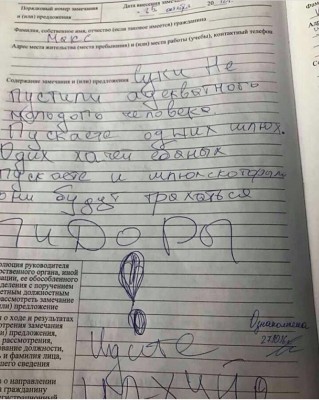 Порядковый номер замечания
и (или) предложения
Дата внесения замечания
20
Фамилия, собственное имя, отчество (если таковое имеется) гражданина
Макс
Адрес места жительства (места пребывания) и (или) места работы (учебы), контактный телефон
Содержание замечания и (или) предложения Суки не
Пустили адекватного
молодого человека.
Пускаете одних шлюх.
Одих хачей ебаных
Пускаете и шлюх которых
они будут трахаться
ПиДоРЫ
руководителя
органа, иной
ее обособленного
с поручением
должностным
рассмотреть замечание
(или) предложение
о ходе и результатах
рассмотрения замечания
(или) предложения,
рассмотрения,
должности,
фамилия лица,
сведения
Идите
Ознакомлена
о направлении
гражданину
На хуй